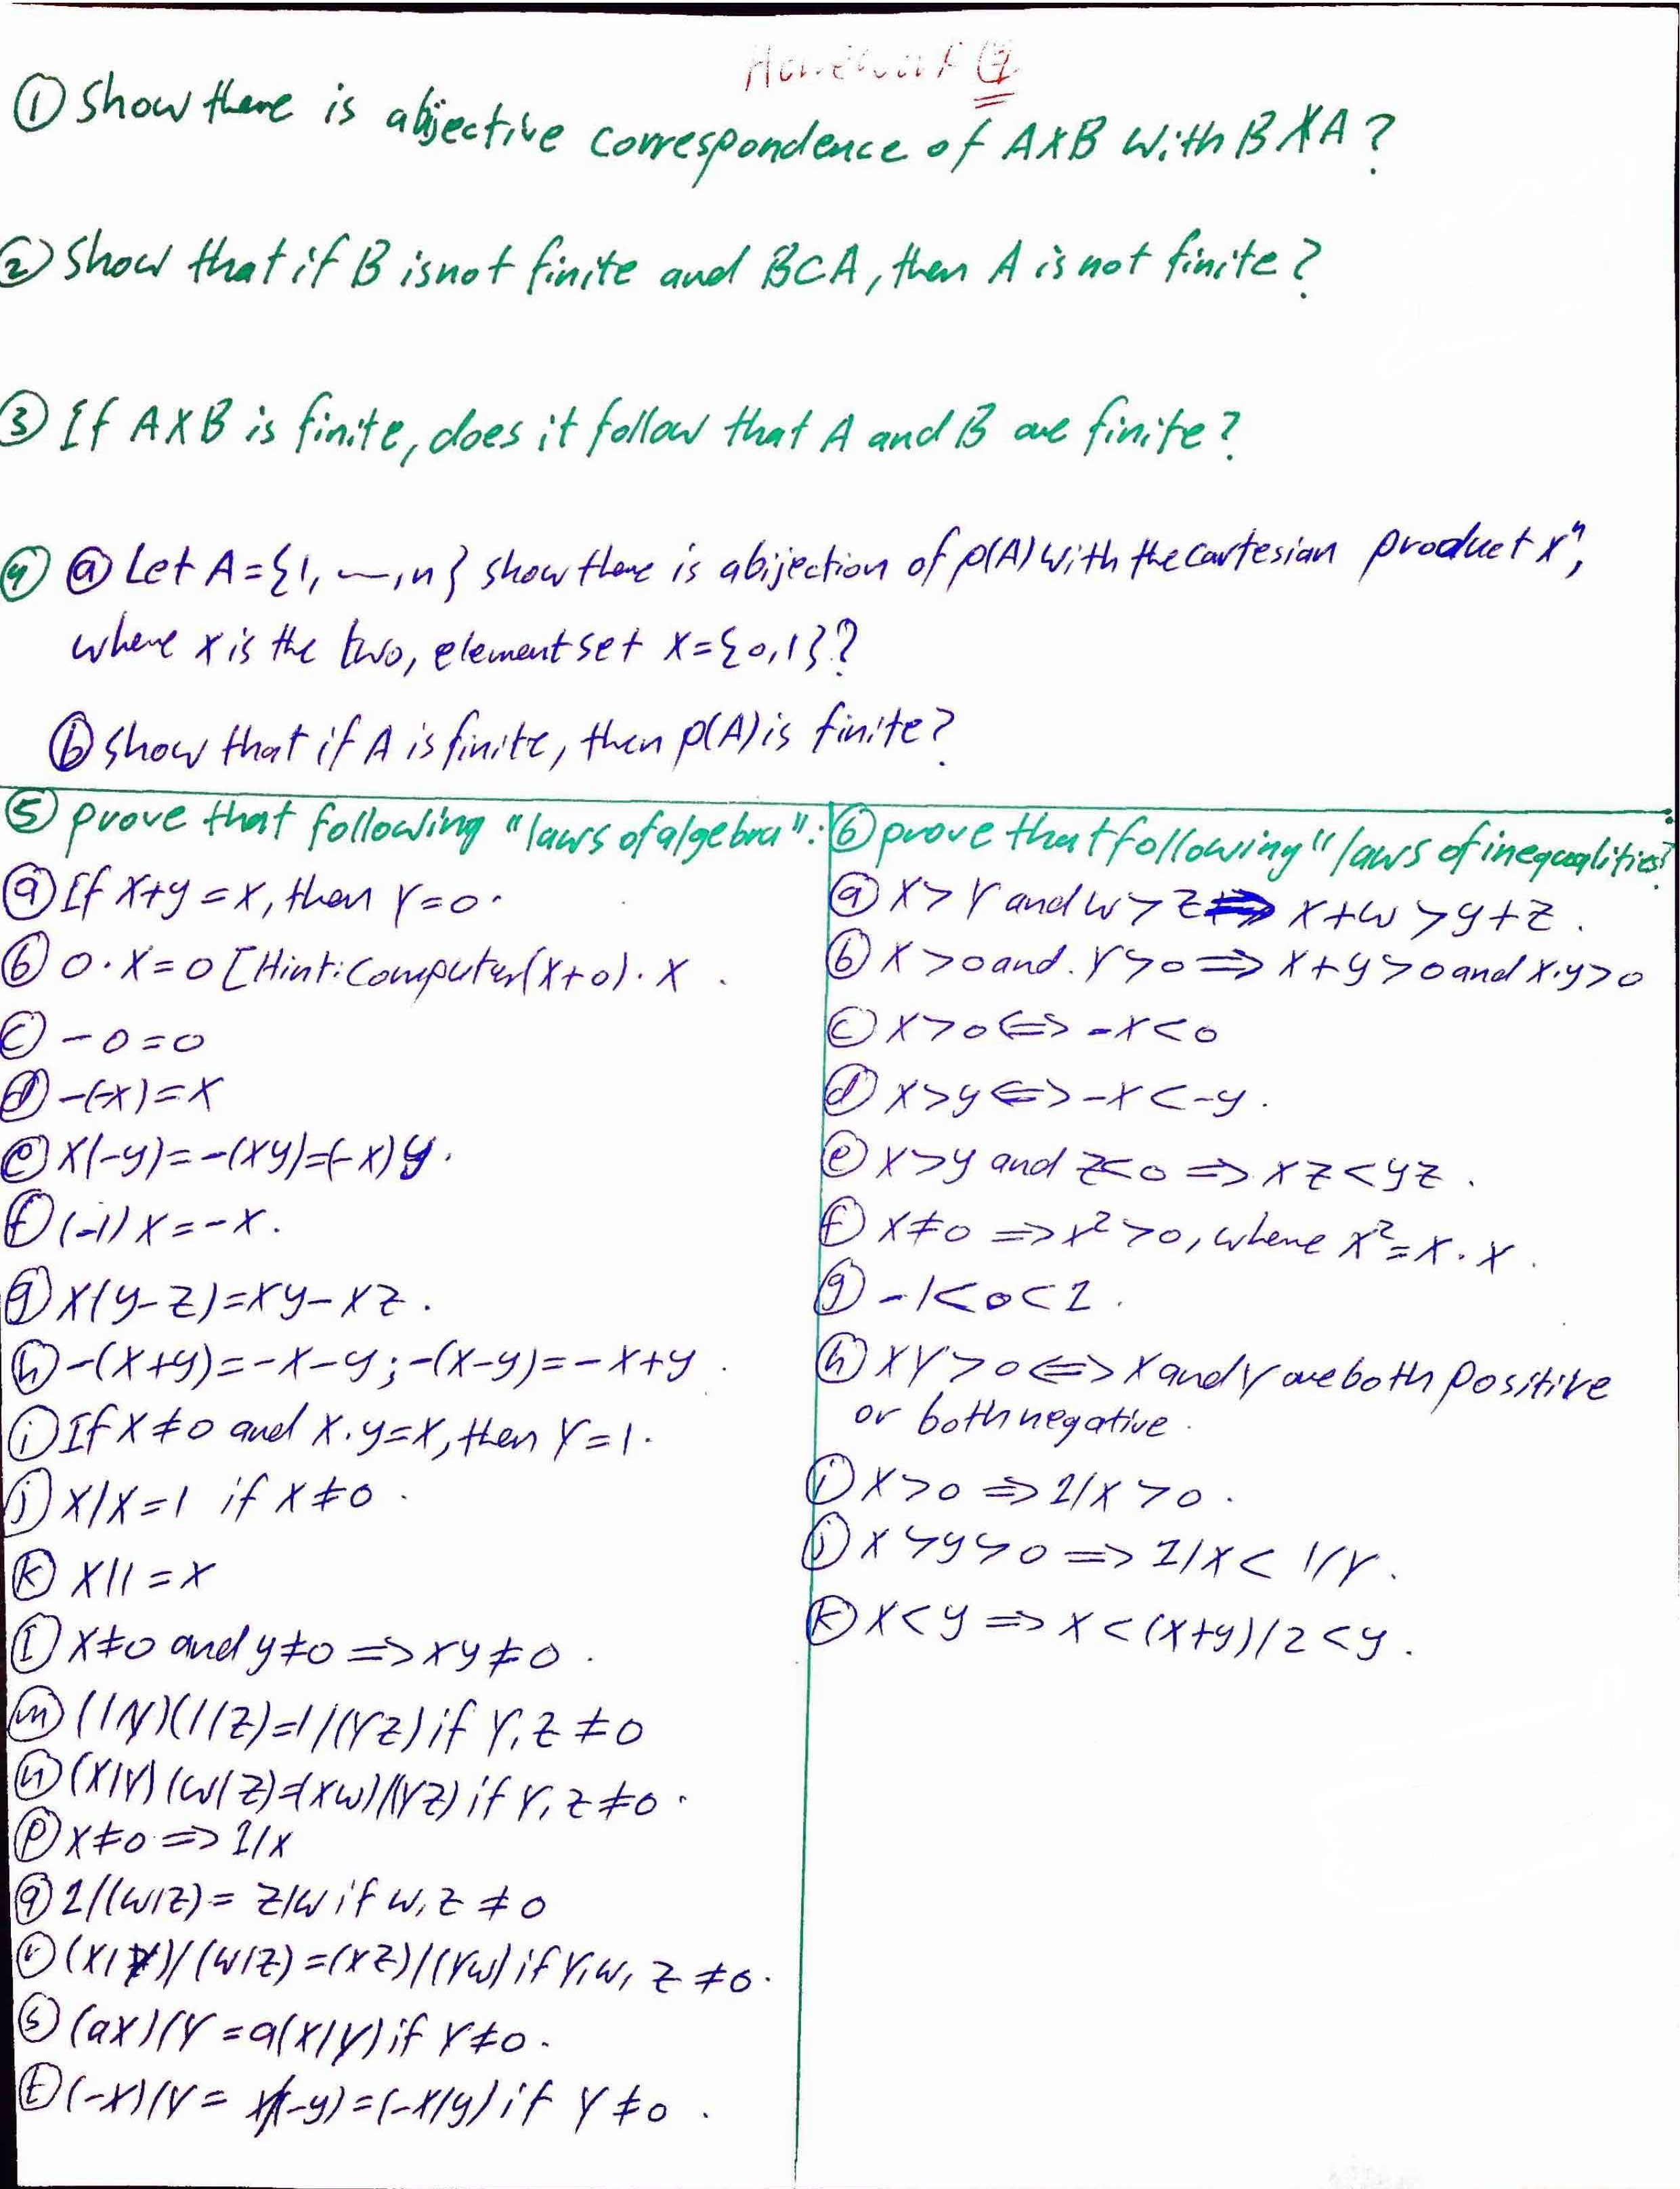 Homework 1
① Show there is a bijective correspondence of A×B with B×A?
② Show that if B is not finite and B⊂A, then A is not finite?
③ If A×B is finite, does it follow that A and B are finite?
④ ⓐ Let A={1, —, n} show there is a bijection of p(A) with the cartesian product xⁿ,
where x is the two, element set x={0,1}?
ⓑ Show that if A is finite, then p(A) is finite?
⑤ prove that following "laws of algebra":
ⓐ If x+y=x, then Y=0.
ⓑ 0·x=0 [Hint: Computer(x+0)·x.
ⓒ -0=0
ⓓ -(-x)=x
ⓔ x(-y)=-(xy)=(-x)y.
ⓕ (-1)x=-x.
ⓖ x(y-z)=xy-xz.
ⓗ -(x+y)=-x-y; -(x-y)=-x+y.
ⓘ If x≠0 and x.y=x, then Y=1.
ⓙ x/x=1 if x≠0.
ⓚ x/1=x
ⓛ x≠0 and y≠0 ⇒ xy≠0.
ⓜ (1/y)(1/z)=1/(Yz) if Y,z≠0
ⓝ (x/Y)(w/z)=(xw)/(Yz) if Y,z≠0.
ⓟ x≠0 ⇒ 1/x
ⓠ 1/(w/z)= z/w if w,z≠0
ⓡ (x/y)/(w/z)=(xz)/(Yw) if Y,w,z≠0.
ⓢ (ax)/Y=a(x/y) if Y≠0.
ⓣ (-x)/Y= x/(-y)=(-x/y) if Y≠0.
⑥ prove that following "laws of inequalities"
ⓐ x>Y and w>z ⇒ x+w>y+z.
ⓑ x>0 and. Y>0 ⇒ x+y>0 and x.y>0
ⓒ x>0 ⇔ -x<0
ⓓ x>y ⇔ -x<-y.
ⓔ x>y and z<0 ⇒ xz<yz.
ⓕ x≠0 ⇒ x²>0, where x²=x.x.
ⓖ -1<0<1.
ⓗ xY>0 ⇔ x and Y are both positive
or both negative.
ⓘ x>0 ⇒ 1/x>0.
ⓙ x>y>0 ⇒ 1/x<1/Y.
ⓚ x<y ⇒ x<(x+y)/2<y.